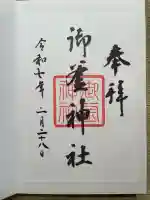 奉拝
御釜神社
令和七年二月二十八日